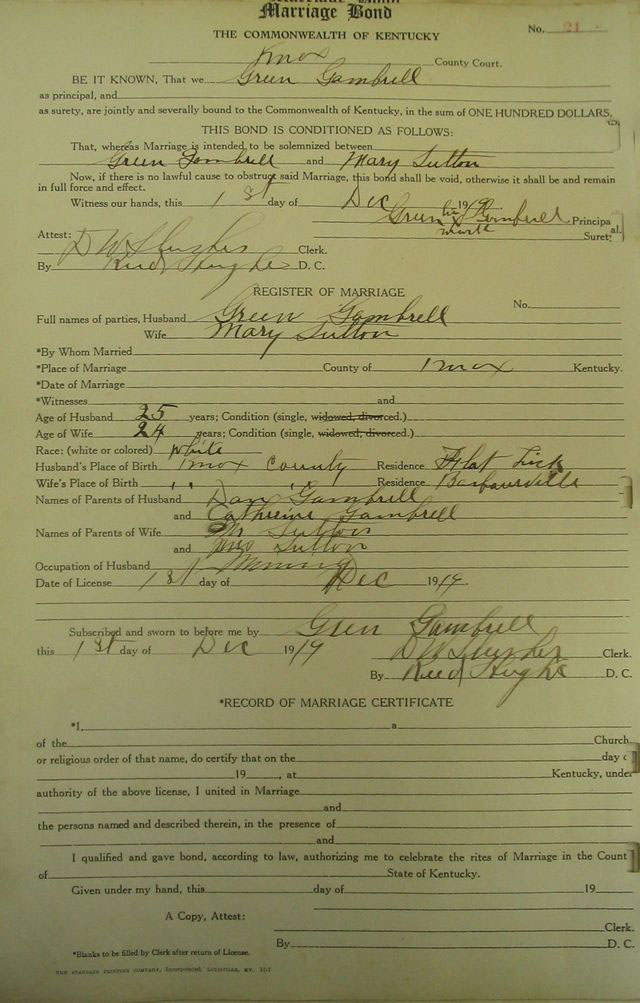 Marriage Bond
Marriage Bond
THE COMMONWEALTH OF KENTUCKY
No. 21
Knox County Court.
BE IT KNOWN, That we Green Gambrell
as principal, and
as surety, are jointly and severally bound to the Commonwealth of Kentucky, in the sum of ONE HUNDRED DOLLARS.
THIS BOND IS CONDITIONED AS FOLLOWS:
That, whereas Marriage is intended to be solemnized between
Green Gambrell and Mary Sutton
Now, if there is no lawful cause to obstruct said Marriage, this bond shall be void, otherwise it shall be and remain
in full force and effect.
Witness our hands, this 1st day of Dec 1919.
Green his X Gambrell Principal.
mark
Surety
Attest:
Clerk.
By Reed Hughes D. C.
REGISTER OF MARRIAGE
No.
Full names of parties, Husband Green Gambrell
Wife Mary Sutton
*By Whom Married
*Place of Marriage County of Knox Kentucky.
*Date of Marriage
*Witnesses and
Age of Husband 25 years; Condition (single, widowed, divorced.)
Age of Wife 24 years; Condition (single, widowed, divorced.)
Race: (white or colored) White
Husband's Place of Birth Knox County Residence Flat Lick
Wife's Place of Birth " " Residence Barbourville
Names of Parents of Husband Dan Gambrell
and Cathreine Gambrell
Names of Parents of Wife Mr Sutton
and Mrs Sutton
Occupation of Husband Mining
Date of License 1st day of Dec 1919.
Subscribed and sworn to before me by Green Gambrell
this 1st day of Dec 1919
Clerk.
By Reed Hughes D. C.
*RECORD OF MARRIAGE CERTIFICATE
*I, a
of the Church
or religious order of that name, do certify that on the day
19 , at Kentucky, under
authority of the above license, I united in Marriage
and
the persons named and described therein, in the presence of
and
I qualified and gave bond, according to law, authorizing me to celebrate the rites of Marriage in the Count
of State of Kentucky.
Given under my hand, this day of 19
A Copy, Attest:
Clerk.
By D. C.
*Blanks to be filled by Clerk after return of License.
THE STANDARD PRINTING COMPANY, Incorporated, LOUISVILLE, KY.